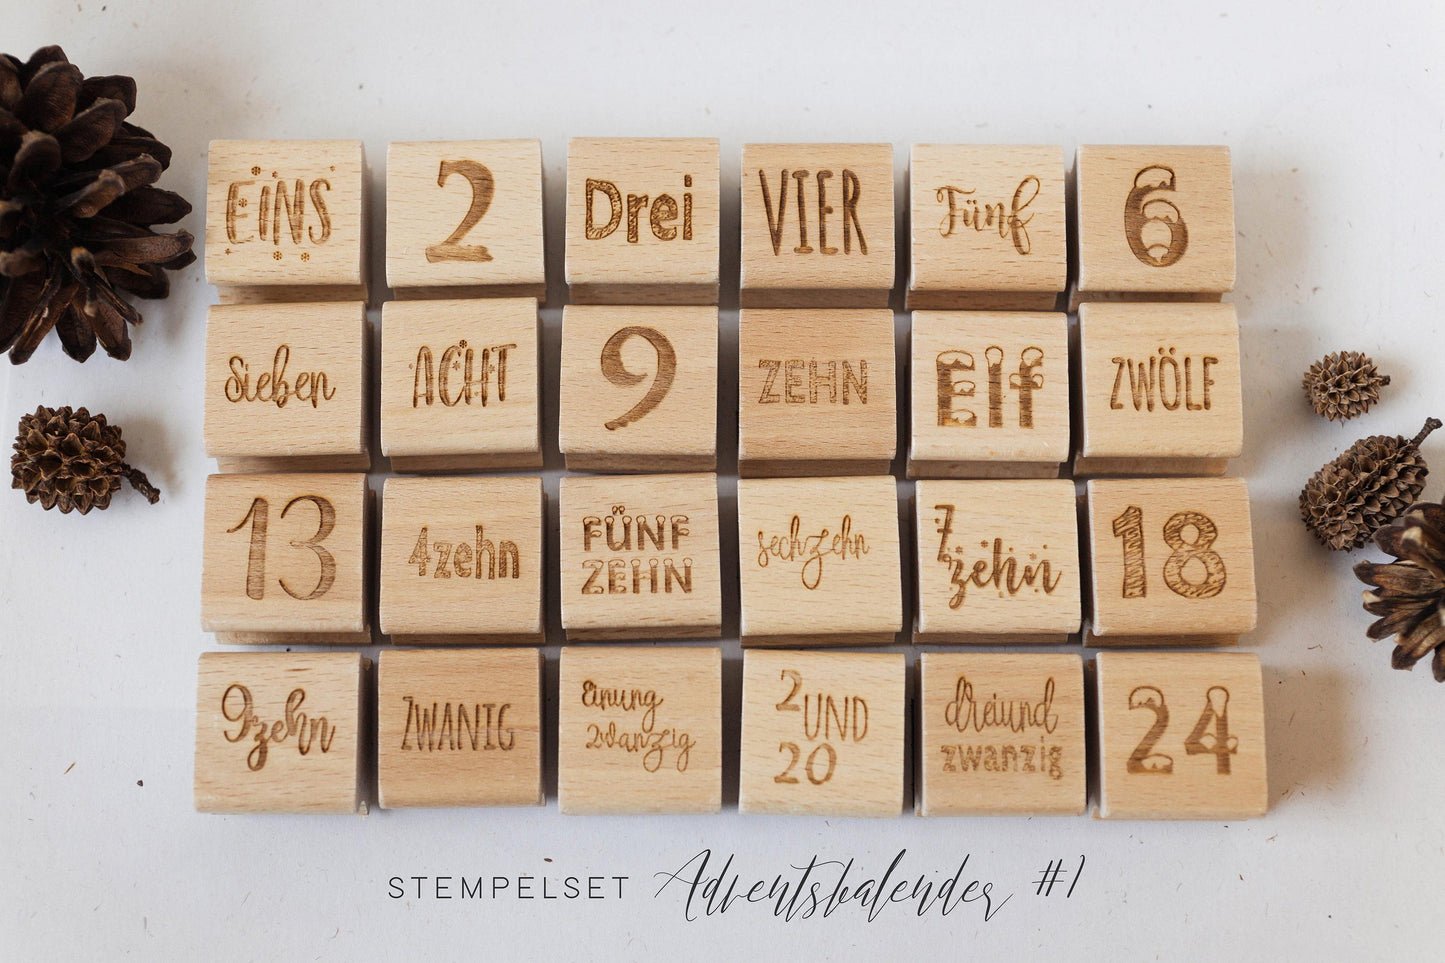 EINS
2
Drei
VIER
Fünf
6
Sieben
ACHT
9
ZEHN
Elf
ZWÖLF
13
4zehn
FÜNF
ZEHN
sechzehn
7
zehn
18
9zehn
ZWANIG
Einung
zwanzig
2
UND
20
dreiund
zwanzig
24
STEMPELSET Adventskalender #1